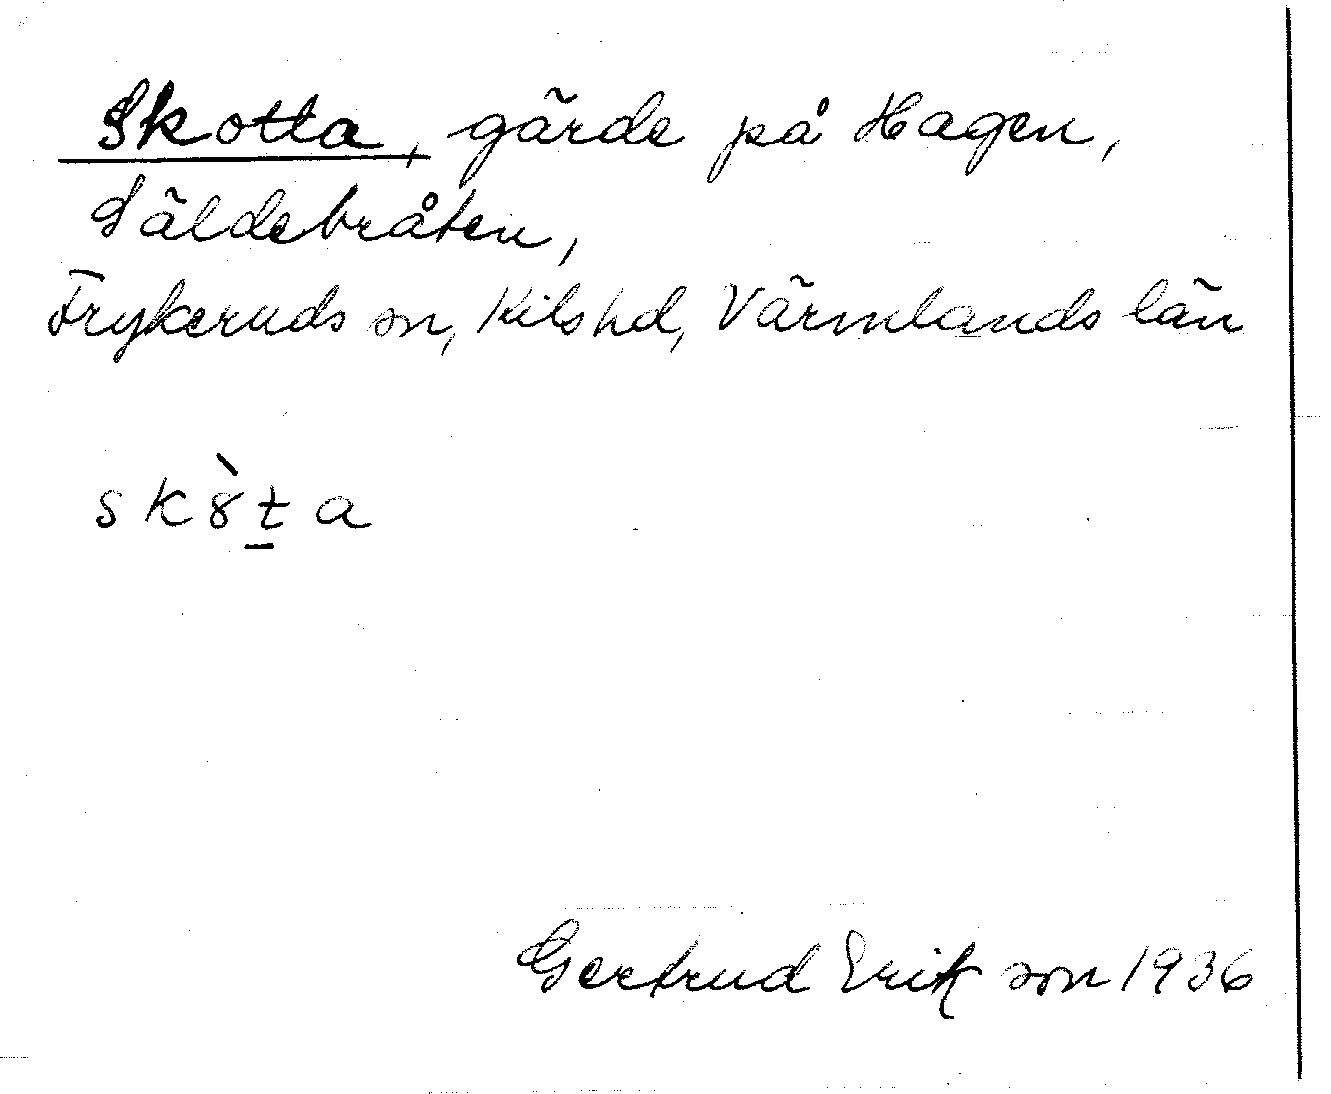 Skotta, gärde på Hagen,
Säldebråten,
Frykeruds sn, Kils hd, Värmlands län
sk8̀t̲a
Gertrud Erikson 1936